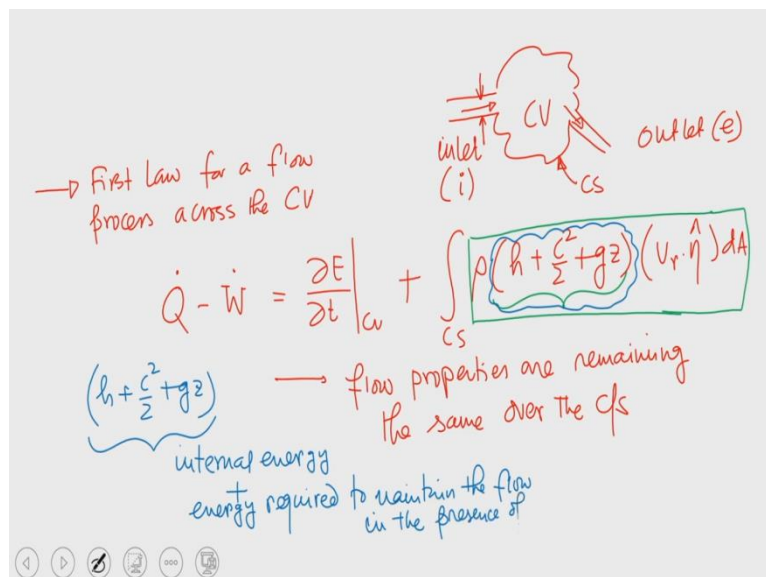 CV
inlet
(i)
outlet (e)
CS
→ First Law for a flow
process across the CV
Q̇ - Ẇ = ∂E/∂t |CV + ∫CS ρ(h + c²/2 + gz)(Vr·η̂)dA
→ flow properties are remaining
the same over the c/s
(h + c²/2 + gz)
internal energy
+
energy required to maintain the flow
in the presence of